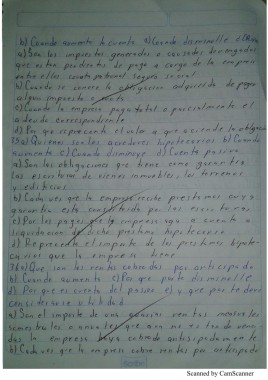 b) Cuando aumenta la cuenta c) Cuando disminuye d)
a) Son los impuestos generados o causados devengados
que estan pendientes de pago a cargo de la empresa
entre ellos cuota patronal seguro social
b) Cuando se conoce la obligación adquirida de pagar
algun impuesto o cuota
c) Cuando la empresa paga total o parcialmente el
adeudo correspondiente
d) Por que representa el valor a que asciende la obligación
a) Quienes son los acreedores hipotecarios b) Cuando
aumenta c) Cuando disminuye d) Cuenta pasivo
a) Son las obligaciones que tiene como garantia
las escrituras de bienes inmuebles, los terrenos
y edificios
b) Cada vez que la empresa recibe prestamos cuya
garantia esta constituida por las escrituras
c) Por los pagos que la empresa haga a cuenta o
liquidacion de dicho prestamo hipotecario
d) Representa el importe de los prestamos hipote-
carios que la empresa tiene
a) Que son las rentas cobradas por anticipado
b) Cuando aumenta c) Por que parte disminuye
d) Por que es cuenta del pasivo e) y que parte debe
considerarse utilidad
a) Son el importe de una o varias rentas mensuales
semestrales o anuales que aun no estando venci
das la empresa haya cobrado anticipadamente
b) Cada vez que la empresa cobre rentas por anticipado
Scanned by CamScanner